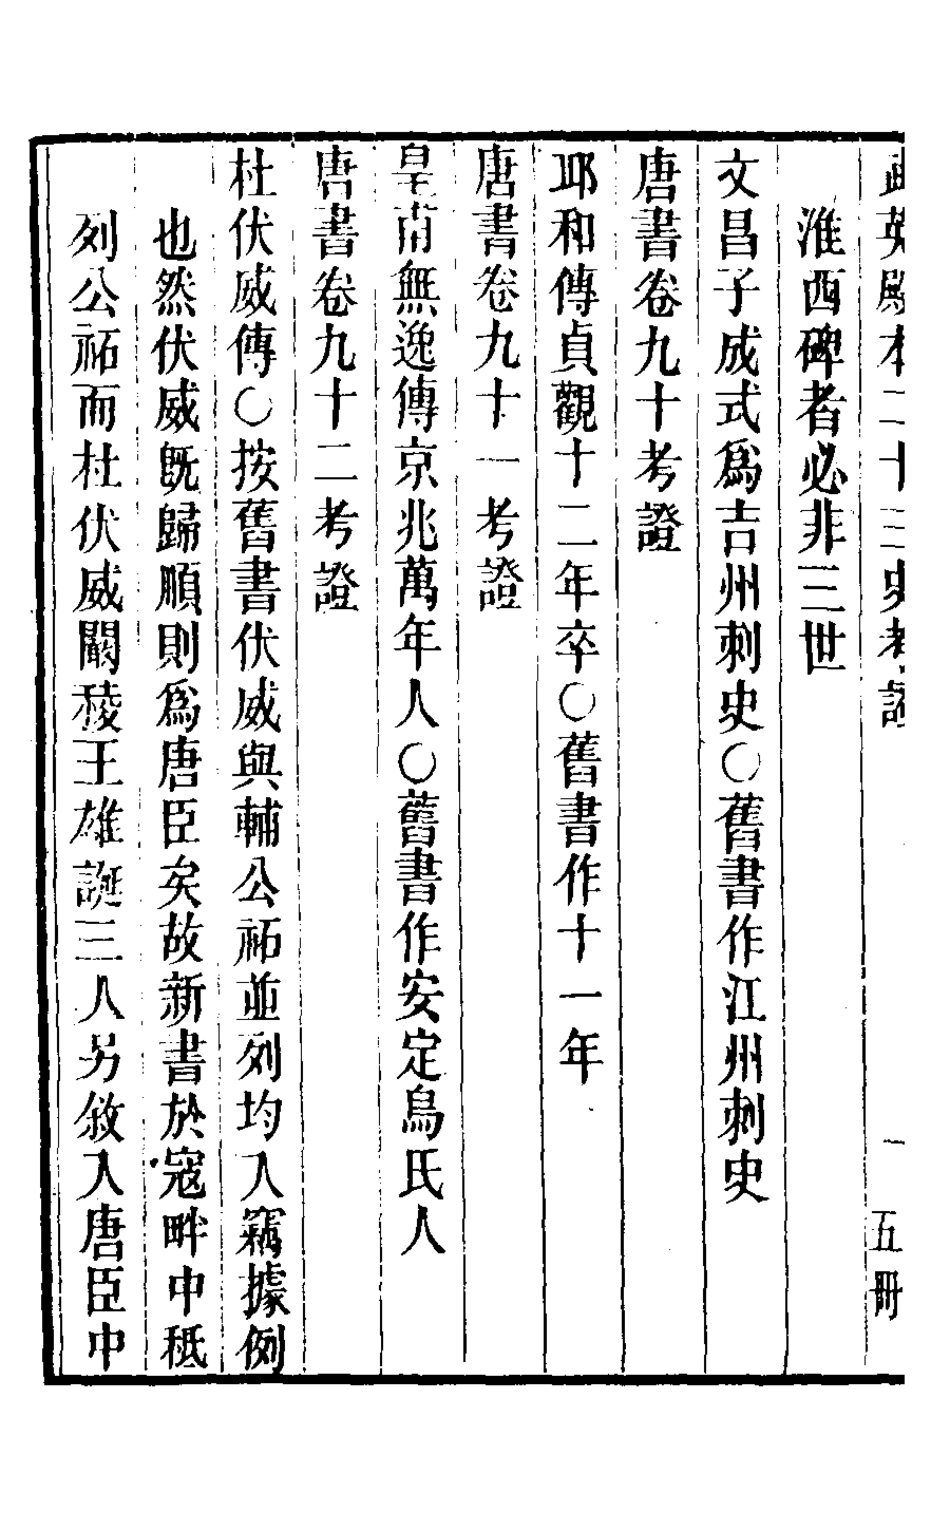 武英殿本二十三史考證 一 五冊
淮西碑者必非三世
文昌子成式爲吉州刺史〇舊書作江州刺史
唐書卷九十考證
邛和傳貞觀十二年卒〇舊書作十一年
唐書卷九十一考證
皇甫無逸傳京兆萬年人〇舊書作安定烏氏人
唐書卷九十二考證
杜伏威傳〇按舊書伏威與輔公祏並列均入竊據例
也然伏威旣歸順則爲唐臣矣故新書於寇畔中秪
列公祏而杜伏威闞稜王雄誕三人另敘入唐臣中